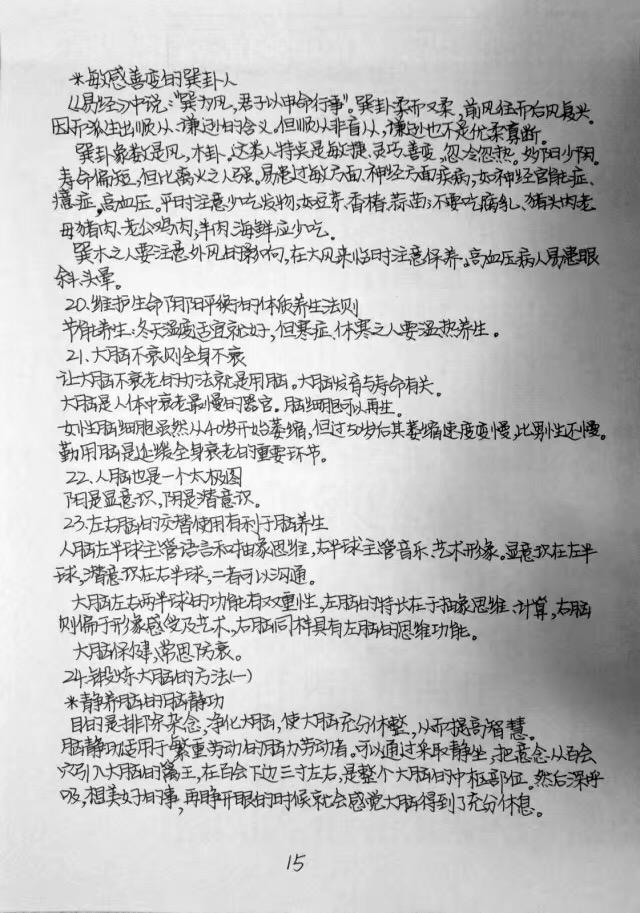 *敏感善变的巽卦人
《易经》中说:"巽为风,君子以申命行事"。巽卦柔而又柔,前风往而后风复兴。
因而派生出顺从、谦逊的含义。但顺从非盲从,谦逊也不是优柔寡断。
巽卦象数是风,木卦。这类人特点是敏捷、灵巧、善变,忽冷忽热。妙阳少阴。
寿命偏短,但比离火之人强。易患过敏方面、神经方面疾病;如神经官能症、
癔症,高血压。平时注意少吃发物:如豆芽、香椿、蒜苗;不要吃腐乳、猪头肉老
母猪肉、老公鸡肉,羊肉海鲜应少吃。
巽木之人要注意外风的影响,在大风来临时注意保养。高血压病人易患眼
斜、头晕。
20.维护生命阴阳平衡的体质养生法则
节能养生:冬天温度适宜就好,但寒症、体寒之人要温热养生。
21.大脑不衰则全身不衰
让大脑不衰老的功法就是用脑。大脑发育与寿命有关。
大脑是人体中衰老最慢的器官。脑细胞可以再生。
女性脑细胞虽然从40岁开始萎缩,但过50岁后其萎缩速度变慢,比男性还慢。
勤用脑是延缓全身衰老的重要环节。
22.人脑也是一个太极图
阳是显意识,阴是潜意识。
23.左右脑的交替使用有利于脑养生
人脑左半球主管语言和抽象思维,右半球主管音乐、艺术形象。显意识在左半
球,潜意识在右半球,二者可以沟通。
大脑左右两半球的功能有双重性,左脑的特长在于抽象思维、计算,右脑
则偏于形象感受及艺术,右脑同样具有左脑的思维功能。
大脑保健,常思防衰。
24.锻炼大脑的方法(一)
*静养脑的脑静功
目的是排除杂念,净化大脑,使大脑充分休整,从而提高智慧。
脑静功适用于繁重劳动的脑力劳动者。可以通过采取静坐,把意念从百会
穴引入大脑的禽王,在百会下边三寸左右,是整个大脑的中枢部位。然后深呼
吸,想美好的事,再睁开眼的时候就会感觉大脑得到了充分休息。
15